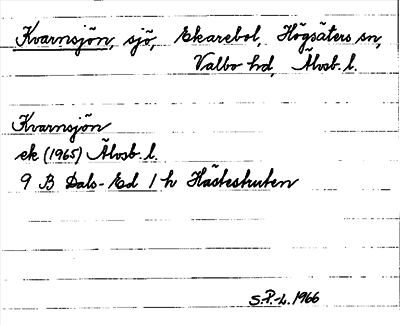 Kvarnsjön, sjö, Ekarebol, Högsäters sn,
Valbo hd, Älvsb. l.
Kvarnsjön
ek (1965) Älvsb. l.
9 B Dals-Ed 1 h Hästestruten
S.P-L. 1966